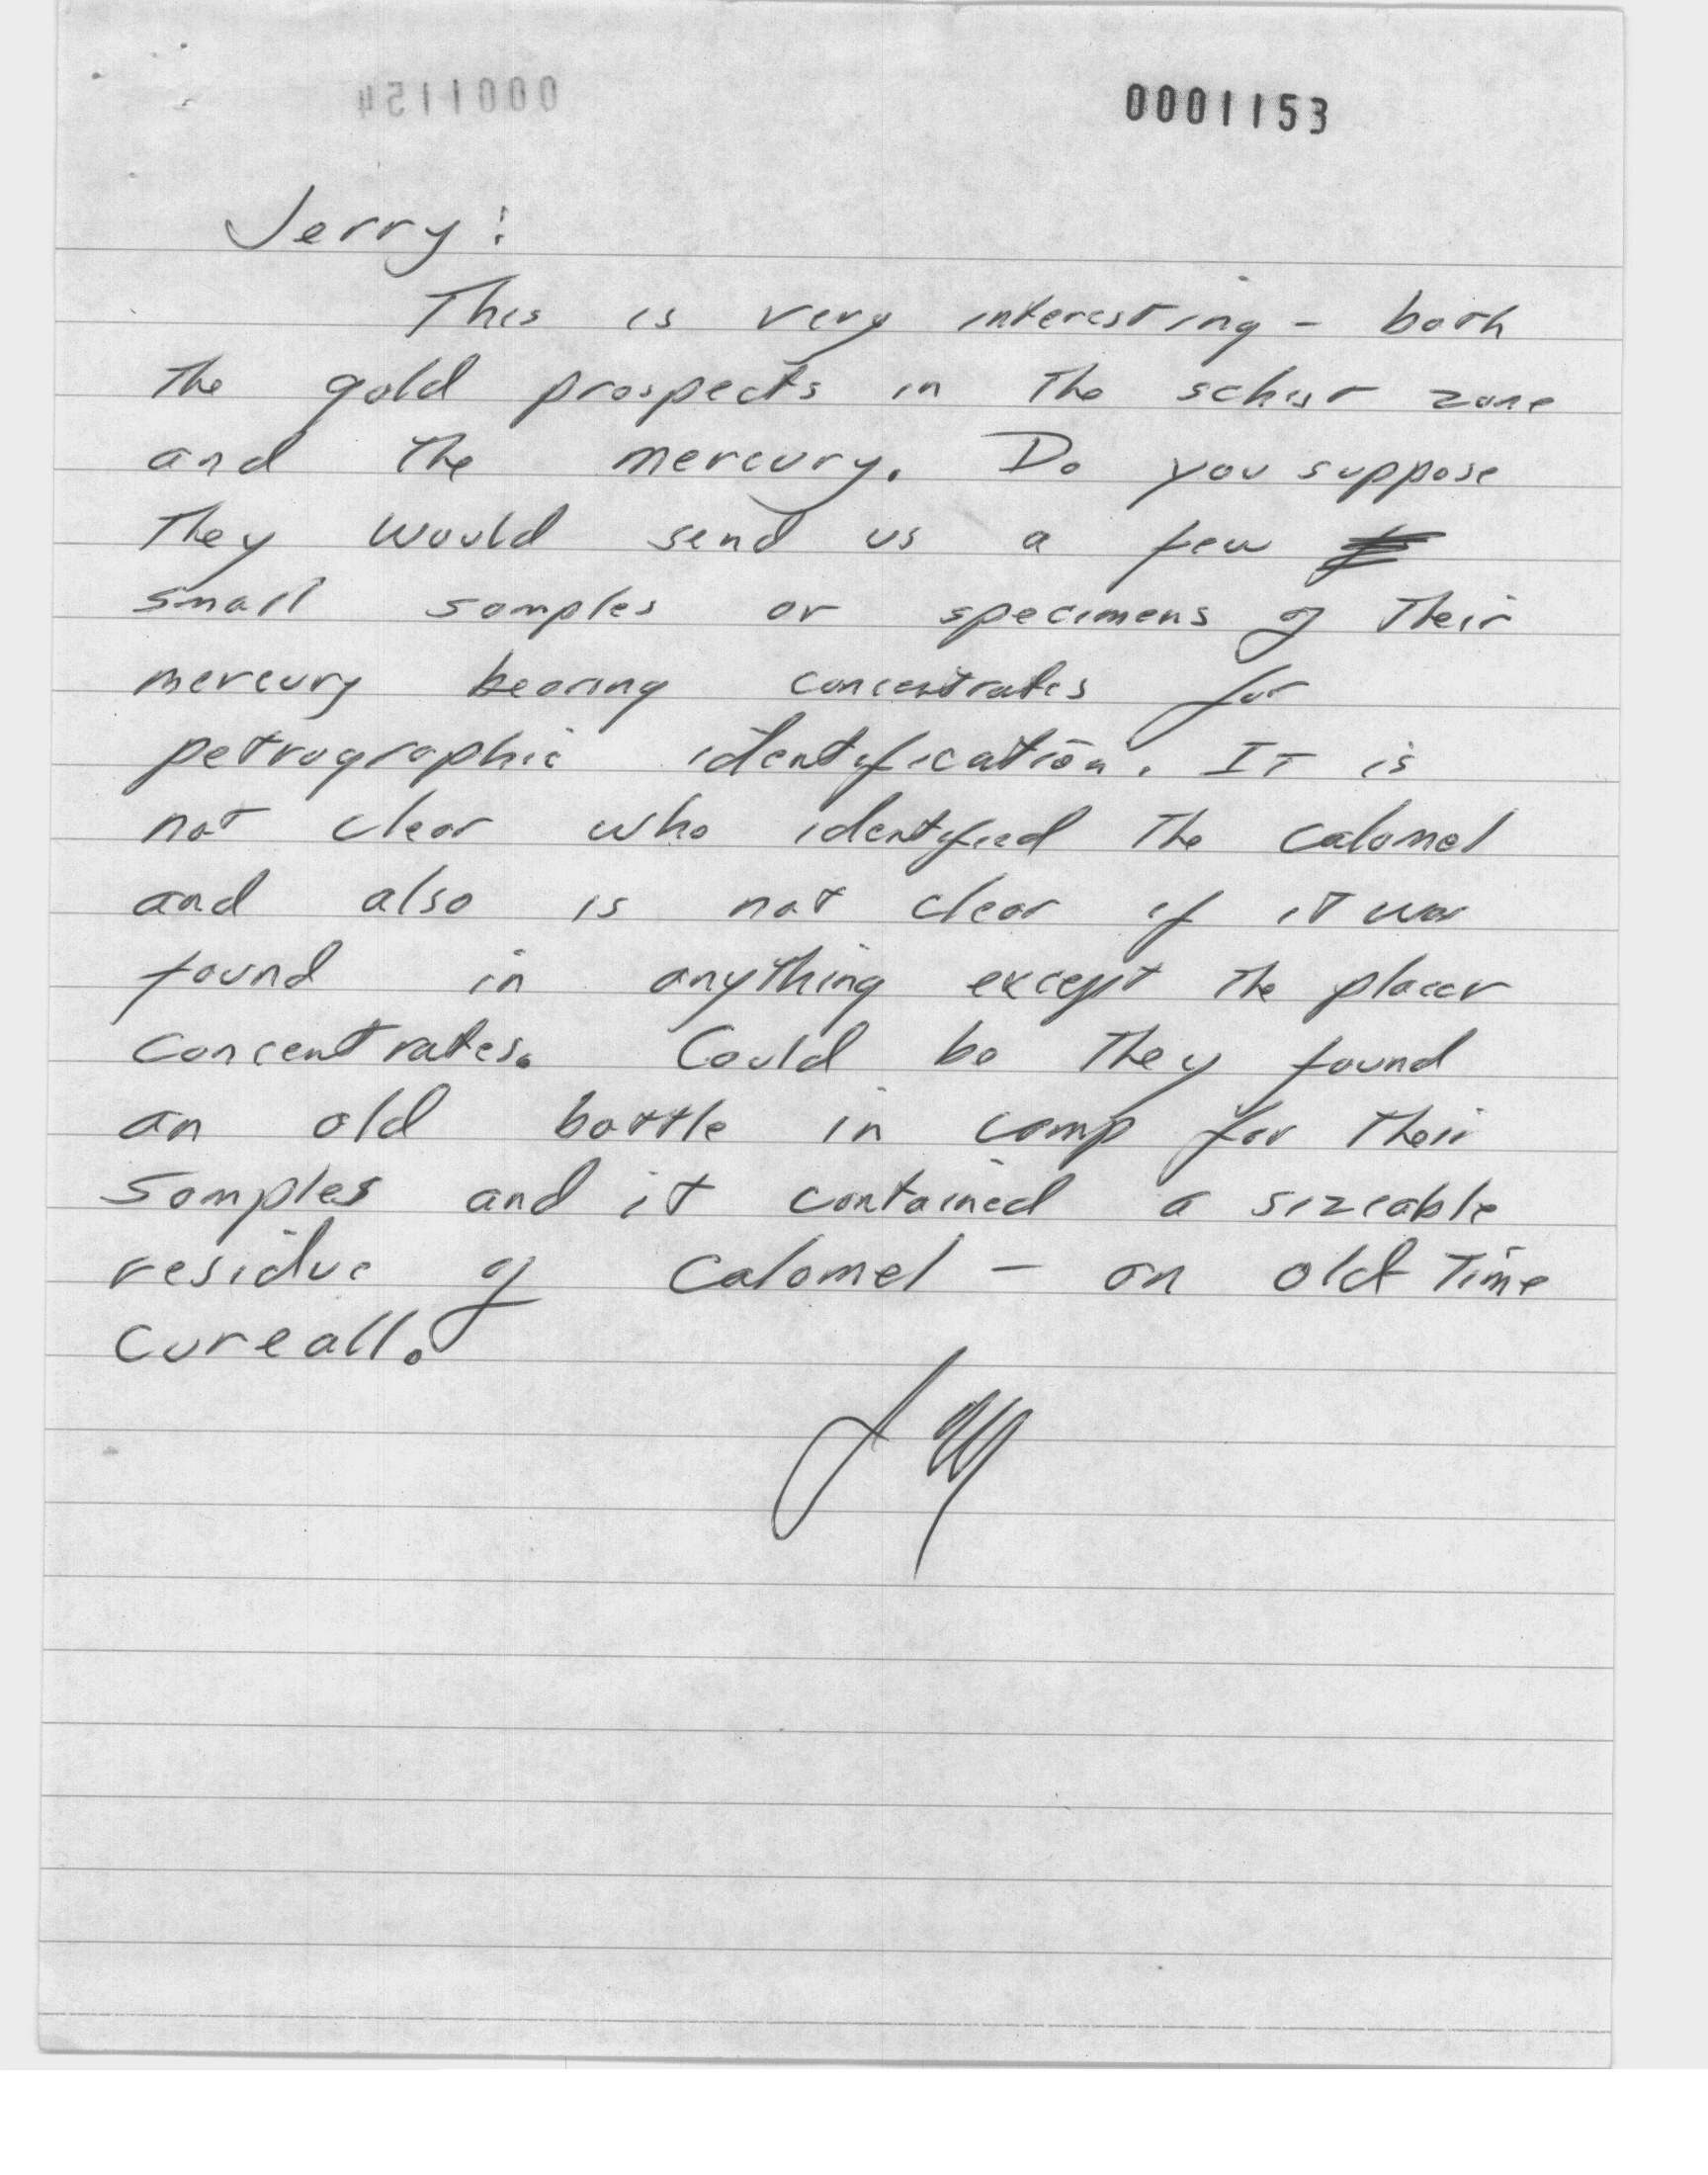 0001154
0001153
Jerry:
This is very interesting - both
the gold prospects in the schist zone
and the mercury. Do you suppose
they would send us a few
small samples or specimens of their
mercury bearing concentrates for
petrographic identification. It is
not clear who identified the calomel
and also is not clear if it was
found in anything except the placer
concentrates. Could be they found
an old bottle in camp for their
samples and it contained a sizeable
residue of calomel - an old time
cureall.